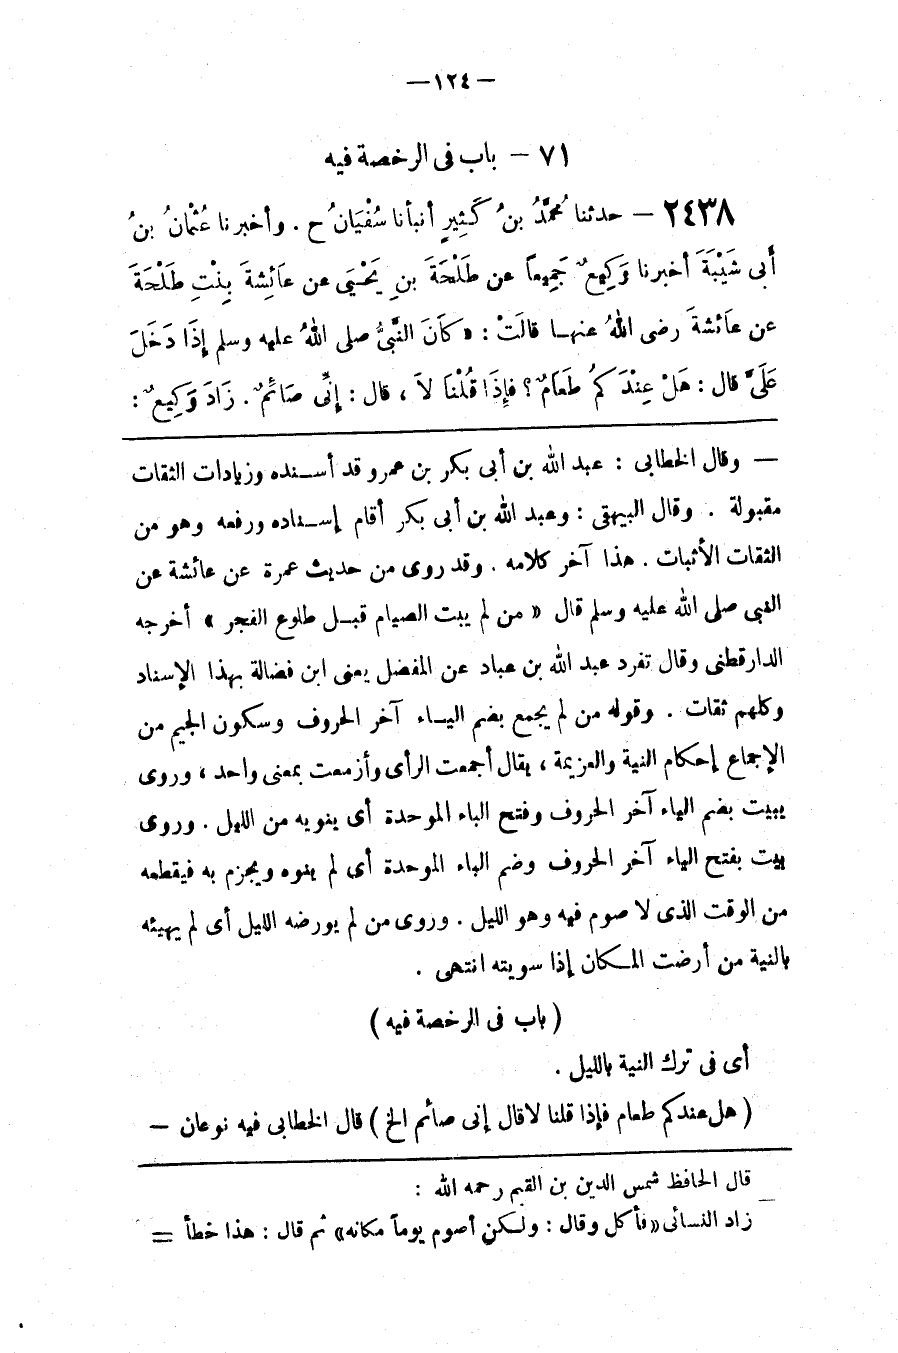 — ١٢٤ —
٧١ — باب فى الرخصة فيه
٢٤٣٨ — حدثنا مُحمَّدُ بنُ كَثِيرٍ أنبأنا سُفْيَانُ ح . وأخبرنا عُثْمانُ بنُ
أَبى شَيْبَةَ أخبرنا وَكِيعٌ جَمِيعاً عن طَلْحَةَ بنِ يَحْيَى عن عَائِشةَ بِنْتِ طَلْحَةَ
عن عَائشةَ رضى اللهُ عنهـا قالَتْ : « كَانَ النَّبىُّ صلى اللهُ عليه وسلم إِذَا دَخَلَ
عَلَىَّ قال : هَلْ عِنْدَ كمُ طَعَامٌ ؟ فإِذَا قُلْنَا لاَ ، قال : إِنِّى صَائمٌ . زَادَ وَكِيعٌ :
— وقال الخطابى : عبد الله بن أبى بكر بن عمرو قد أسـنده وزيادات الثقات
مقبولة . وقال البيهقى : وعبد الله بن أبى بكر أقام إسـناده ورفعه وهو من
الثقات الأثبات . هذا آخر كلامه . وقد روى من حديث عمرة عن عائشة عن
النبى صلى الله عليه وسلم قال « من لم يبت الصيام قبـل طلوع الفجر » أخرجه
الدارقطنى وقال تفرد عبد الله بن عباد عن المفضل يعنى ابن فضالة بهذا الإسناد
وكلهم ثقات . وقوله من لم يجمع بضم اليـاء آخر الحروف وسكون الجيم من
الإجماع إحكام النية والعزيمة ، يقال أجمعت الرأى وأزمعت بمعنى واحد ، وروى
يبيت بضم الياء آخر الحروف وفتح الباء الموحدة أى ينويه من الليل . وروى
يبت بفتح الياء آخر الحروف وضم الباء الموحدة أى لم ينوه ويجزم به فيقطعه
من الوقت الذى لا صوم فيه وهو الليل . وروى من لم يورضه الليل أى لم يهيئه
بالنية من أرضت المـكان إذا سويته انتهى .
( باب فى الرخصة فيه )
أى فى ترك النية بالليل .
( هل عندكم طعام فإذا قلنا لا قال إنى صائم الخ ) قال الخطابى فيه نوعان —
قال الحافظ شمس الدين بن القيم رحمه الله :
زاد النسائى « فأكل وقال : ولـكن أصوم يوماً مكانه » ثم قال : هذا خطأ =